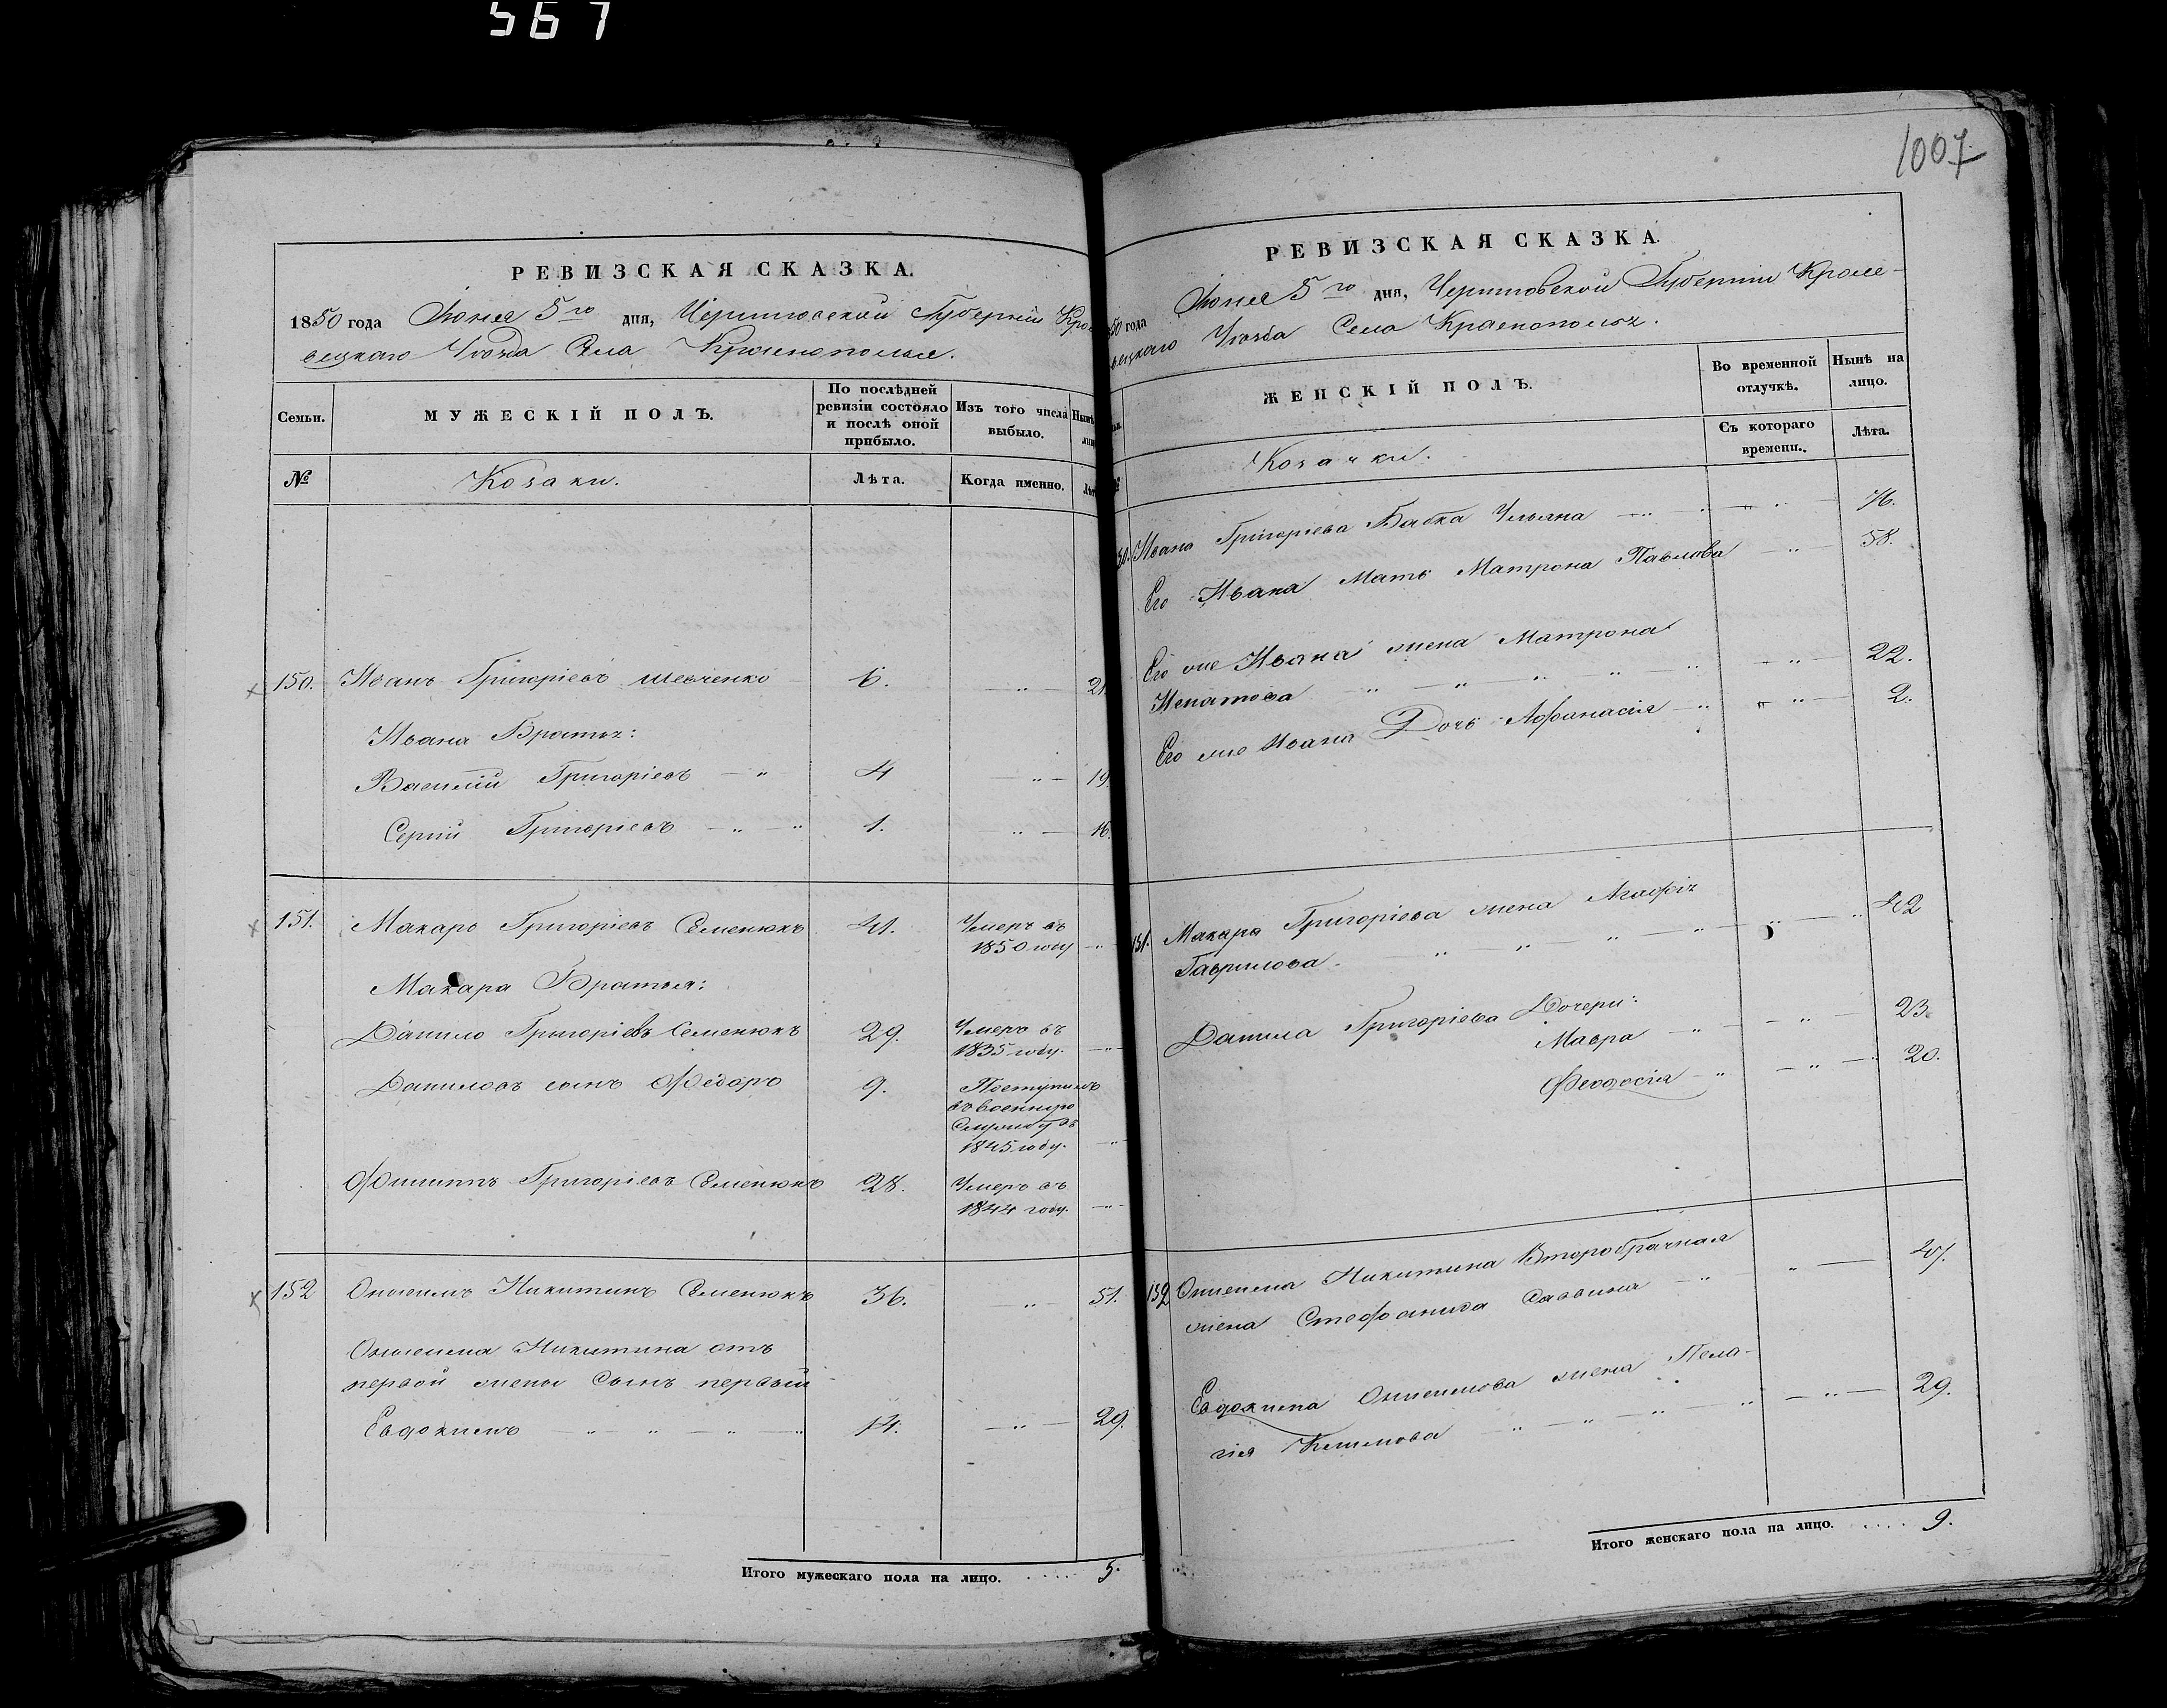 567
РЕВИЗСКАЯ СКАЗКА.
1850 года Июня 5го дня, Черниговской Губерніи Кро
вецкаго Уезда Села Краснополья.
Семьи.
МУЖЕСКІЙ ПОЛЪ.
По послѣдней
ревизіи состояло
и послѣ оной
прибыло.
Изъ того числа
выбыло.
Нынѣ
лиц
№
Козаки.
Лѣта.
Когда именно.
Лѣт
150. Иванъ Григоріевъ Шевченко 6. — „ — 21.
Ивана Братья:
Василій Григоріевъ — „ 4 — „ — 19.
Сергій Григоріевъ — „ — „ 1. „ — 16.
151. Макаръ Григоріевъ Семенюкъ 41. Умеръ въ
1850 году — „
Макара Братья:
Данило Григоріевъ Семенюкъ 29. Умеръ въ
1835 году. — „
Даниловъ сынъ Федоръ 9. Поступилъ
въ военную
Службу въ
1845 году. — „ —
Филиппъ Григоріевъ Семенюкъ 28. Умеръ въ
1844 году. — „ —
152 Онисимъ Никитинъ Семенюкъ 36. — „ — 51.
Онисима Никитина отъ
первой жены Сынъ первый
Евдокимъ — „ — „ — „ — „ 14. — „ — 29.
Итого мужескаго пола на лицо. . . . . 5.
1007
РЕВИЗСКАЯ СКАЗКА.
50 года Июня 5го дня, Черниговской Губерніи Кроле-
вецкаго Уезда Села Краснополья.
ЖЕНСКІЙ ПОЛЪ.
Во временной
отлучкѣ.
Нынѣ на
лицо.
Съ котораго
времени.
Лѣта.
Козачки.
50. Ивана Григорьева Бабка Ульяна — „ — „ — 76.
Его Ивана Мать Матрона Павлова — „ — 58.
Его же Ивана жена Матрона
Игнатова — „ — „ — „ — „ — „ — 22.
Его же Ивана Дочь Афанасія — „ — „ — 2.
151. Макара Григоріева жена Агафія
Гаврилова — „ — „ — „ — „ — „ 42
Данила Григоріева Дочери:
Мавра — „ — „ — 23.
Феодосія — „ — „ — 20.
152 Онисима Никитина Второбрачная
жена Стефанида Саввина — „ — „ — 47.
Евдокима Онисимова жена Пела-
гія Климова — „ — „ — „ — „ — 29.
Итого женскаго пола на лицо. . . . . 9.